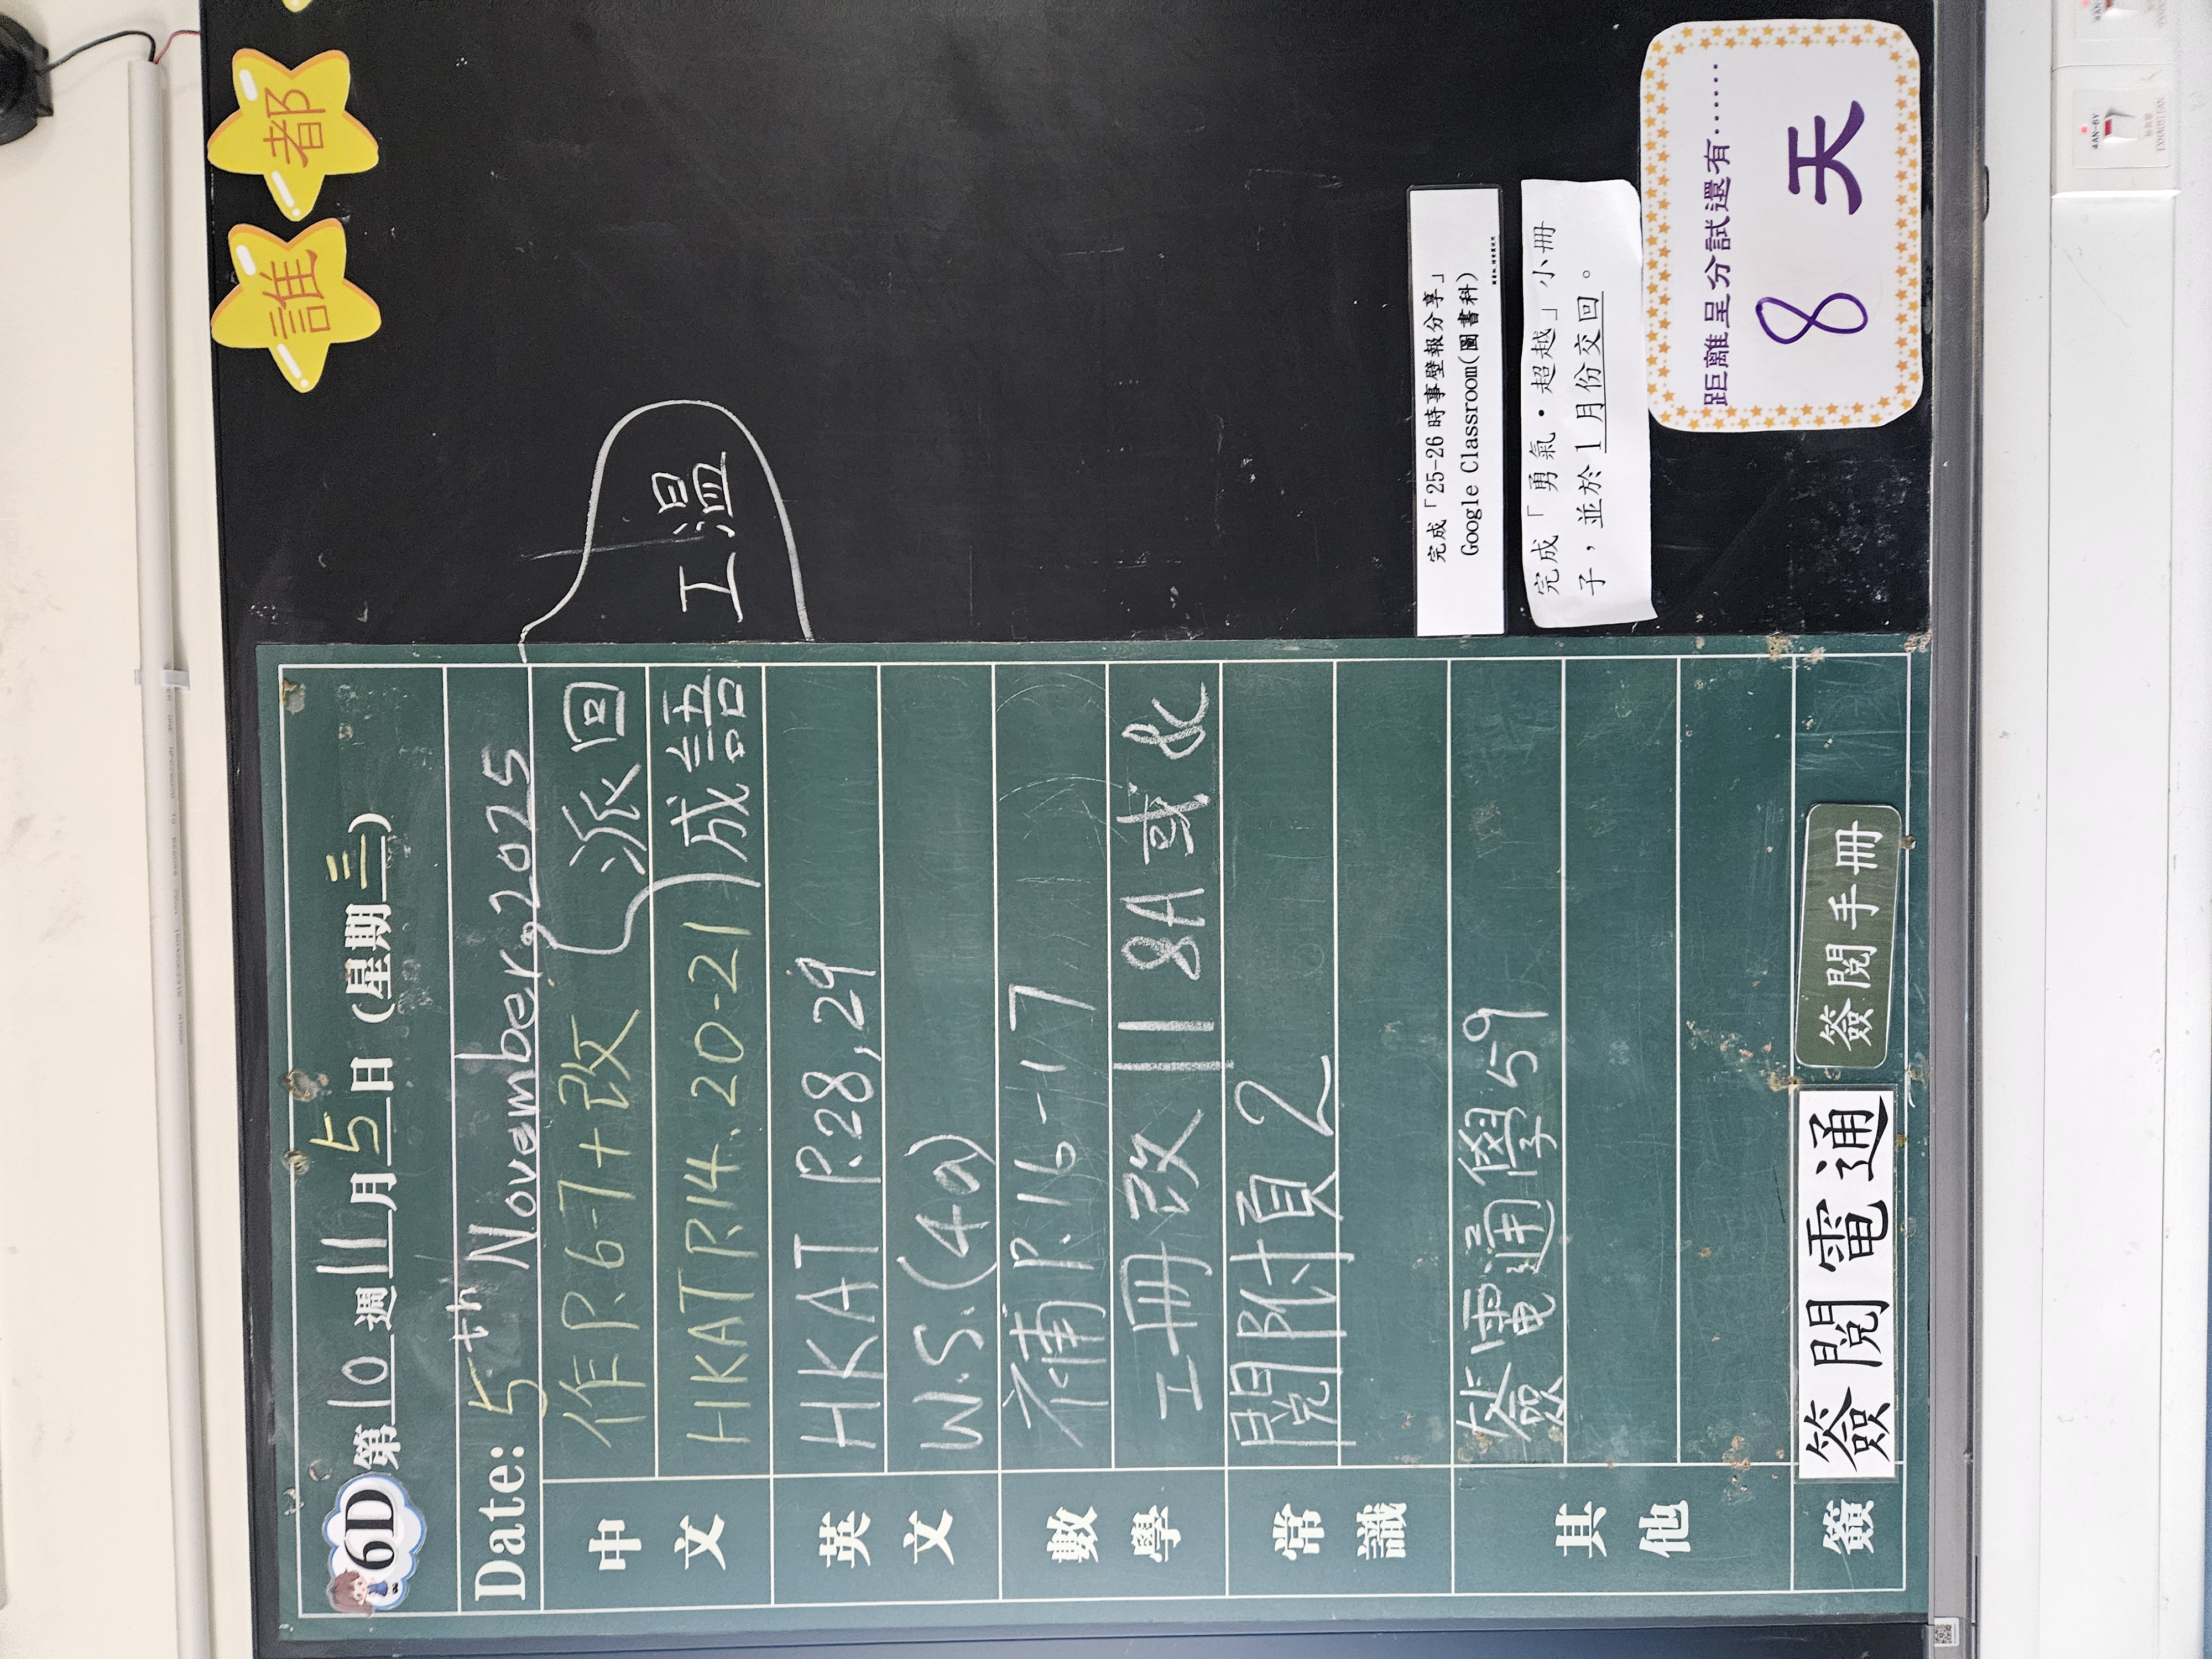 誰都
6D 第10週11月5日(星期三)
Date: 5th November, 2025
中文
作P.6-7+改
派回
HKAT P.14.20-21
成語
工溫
英文
HKAT P.28,29
W.S.(4a)
數學
補P.16-17
工冊改
8A或
常識
閱附頁2
其他
簽電通學59
簽
簽閱電通
簽閱手冊
完成「25-26時事壁報分享」
Google Classroom(圖書科)
完成「勇氣·超越」小冊
子，並於1月份交回。
距離呈分試還有......
8天
4AN-6Y
抽氣扇
EXHAUST FAN